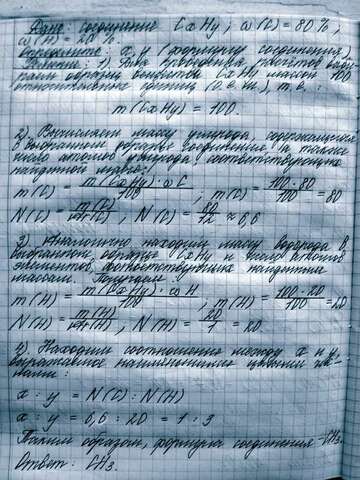 Дано: соединение CxHy; ω(C) = 80%,
ω(H) = 20%
Определить: x, y (формулу соединения).
Решение: 1) Для проведения расчётов выбе-
рем образец вещества CxHy массой 100
относительных единиц (о.е.м.), т.е.:
m(CxHy) = 100.
2) Вычисляем массу углерода, содержащегося
в выбранном образце соединения, а также
число атомов углерода, соответствующих
найденной массе:
m(C) = m(CxHy) · ωC / 100, m(C) = 100 · 80 / 100 = 80
N(C) = m(C) / Ar(C), N(C) = 80 / 12 ≈ 6,6
3) Аналогично находим массу водорода в
выбранном образце CxHy и число атомов
элементов, соответствующих найденным
массам. Получаем:
m(H) = m(CxHy) · ωH / 100, m(H) = 100 · 20 / 100 = 20
N(H) = m(H) / Ar(H), N(H) = 20 / 1 = 20.
4) Находим соотношение между x и y,
выраженное наименьшими целыми чис-
лами:
x : y = N(C) : N(H)
x : y = 6,6 : 20 = 1 : 3
Таким образом, формула соединения – CH3.
Ответ: CH3.